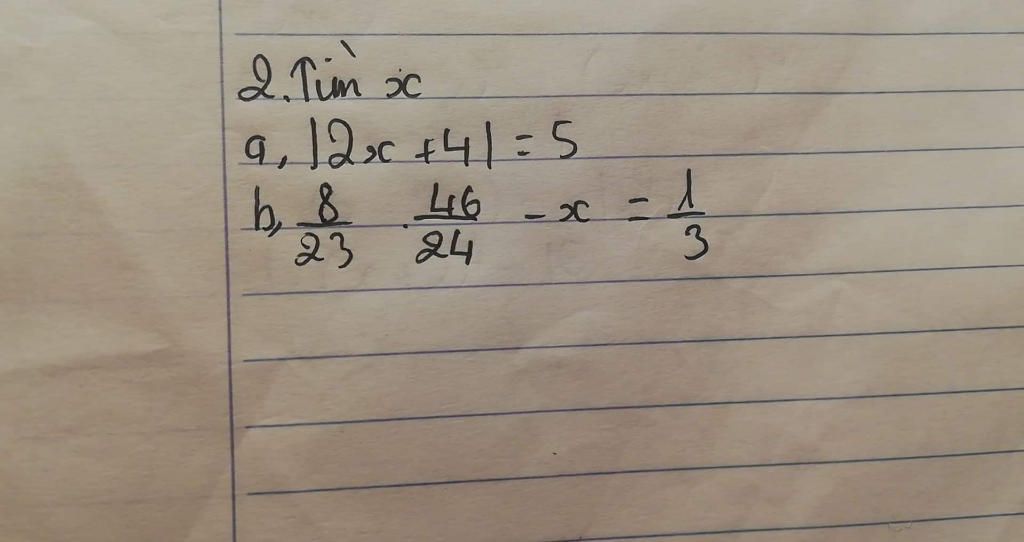 2. Tìm x
a, |2x + 4| = 5
b, 8/23 . 46/24 - x = 1/3